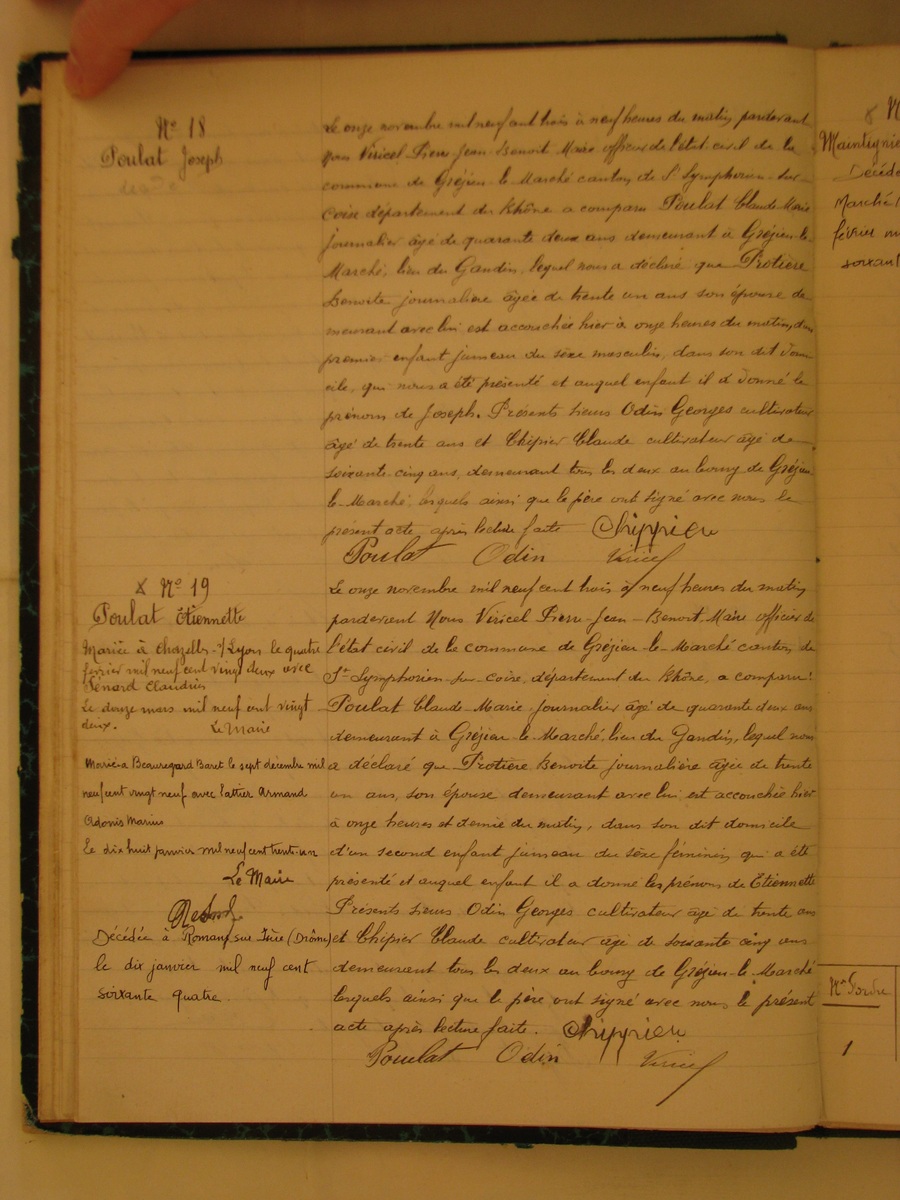 Nº 18
Poulat Joseph
Le onze novembre mil neuf cent trois à neuf heures du matin pardevant
Nous Viricel Pierre-Jean-Benoit Maire officier de l'état civil de la
commune de Grézieu-le-Marché canton de St Symphorien-sur-
Coise département du Rhône a comparu Poulat Claude Marie
journalier âgé de quarante deux ans demeurant à Grézieu-le-
Marché, lieu du Gandin, lequel nous a déclaré que Protière
Benoite journalière âgée de trente un ans son épouse de-
meurant avec lui est accouchée hier à onze heures du matin, du
premier enfant jumeau du sexe masculin, dans son dit domi-
cile, qui nous a été présenté et auquel enfant il a donné le
prénom de Joseph. Présents sieurs Odin Georges cultivateur
âgé de trente ans et Chipier Claude cultivateur âgé de
soixante-cinq ans, demeurant tous les deux au bourg de Grézieu
le-Marché, lesquels ainsi que le père ont signé avec nous le
présent acte, après lecture faite Chippieu
Poulat Odin Viricel
Nº 19
Poulat Etiennette
Mariée à Chazelles-s/Lyon le quatre
février mil neuf cent vingt deux avec
Pénard Claudius
Le douze mars mil neuf cent vingt
deux.
Le Maire
Mariée à Beauregard Baret le sept décembre mil
neuf cent vingt neuf avec Armand
Adonis Marius
Le dix huit janvier mil neuf cent trente-un
Le Maire
Décédée à Romans sur Isère (Drôme)
le dix janvier mil neuf cent
soixante quatre.
Le onze novembre mil neuf cent trois à neuf heures du matin
pardevant Nous Viricel Pierre-Jean-Benoit, Maire officier de
l'état civil de la commune de Grézieu-le-Marché canton de
St Symphorien-sur-Coise, département du Rhône, a comparu:
Poulat Claude-Marie journalier âgé de quarante deux ans
demeurant à Grézieu-le-Marché, lieu du Gandin, lequel nous
a déclaré que Protière Benoite journalière âgée de trente
un ans, son épouse demeurant avec lui est accouchée hier
à onze heures et demie du matin, dans son dit domicile
d'un second enfant jumeau du sexe féminin qui a été
présenté et auquel enfant il a donné les prénoms de Etiennette
Présents sieurs Odin Georges cultivateur âgé de trente ans
et Chipier Claude cultivateur âgé de soixante cinq ans
demeurant tous les deux au bourg de Grézieu-le-Marché
lesquels ainsi que le père ont signé avec nous le présent
acte après lecture faite. Chippieu
Poulat Odin Viricel
Décédé
Marché
février
soixant
1